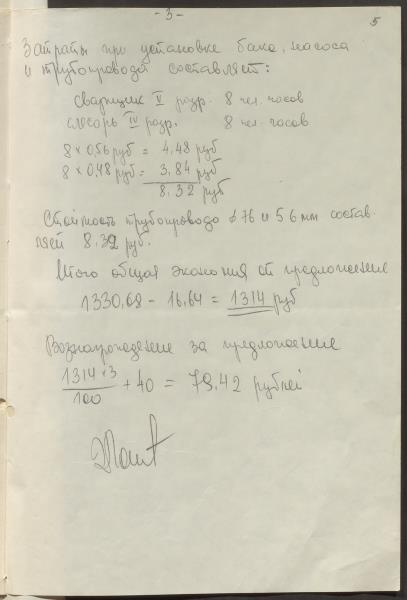 - 3 -
5
Затраты при установке бака, насоса
и трубопровода составляет:
Сварщик V разр. 8 чел. часов
слесарь IV разр. 8 чел. часов
8 × 0,56 руб = 4,48 руб
8 × 0,48 руб = 3,84 руб
8,32 руб
Стоимость трубопровода ø 76 и 56 мм состав-
ляет 8,32 руб.
Итого общая экономия от предложение
1330,68 - 16,64 = 1314 руб
Вознаграждение за предложение
1314 × 3
100
+ 40 = 79,42 рублей